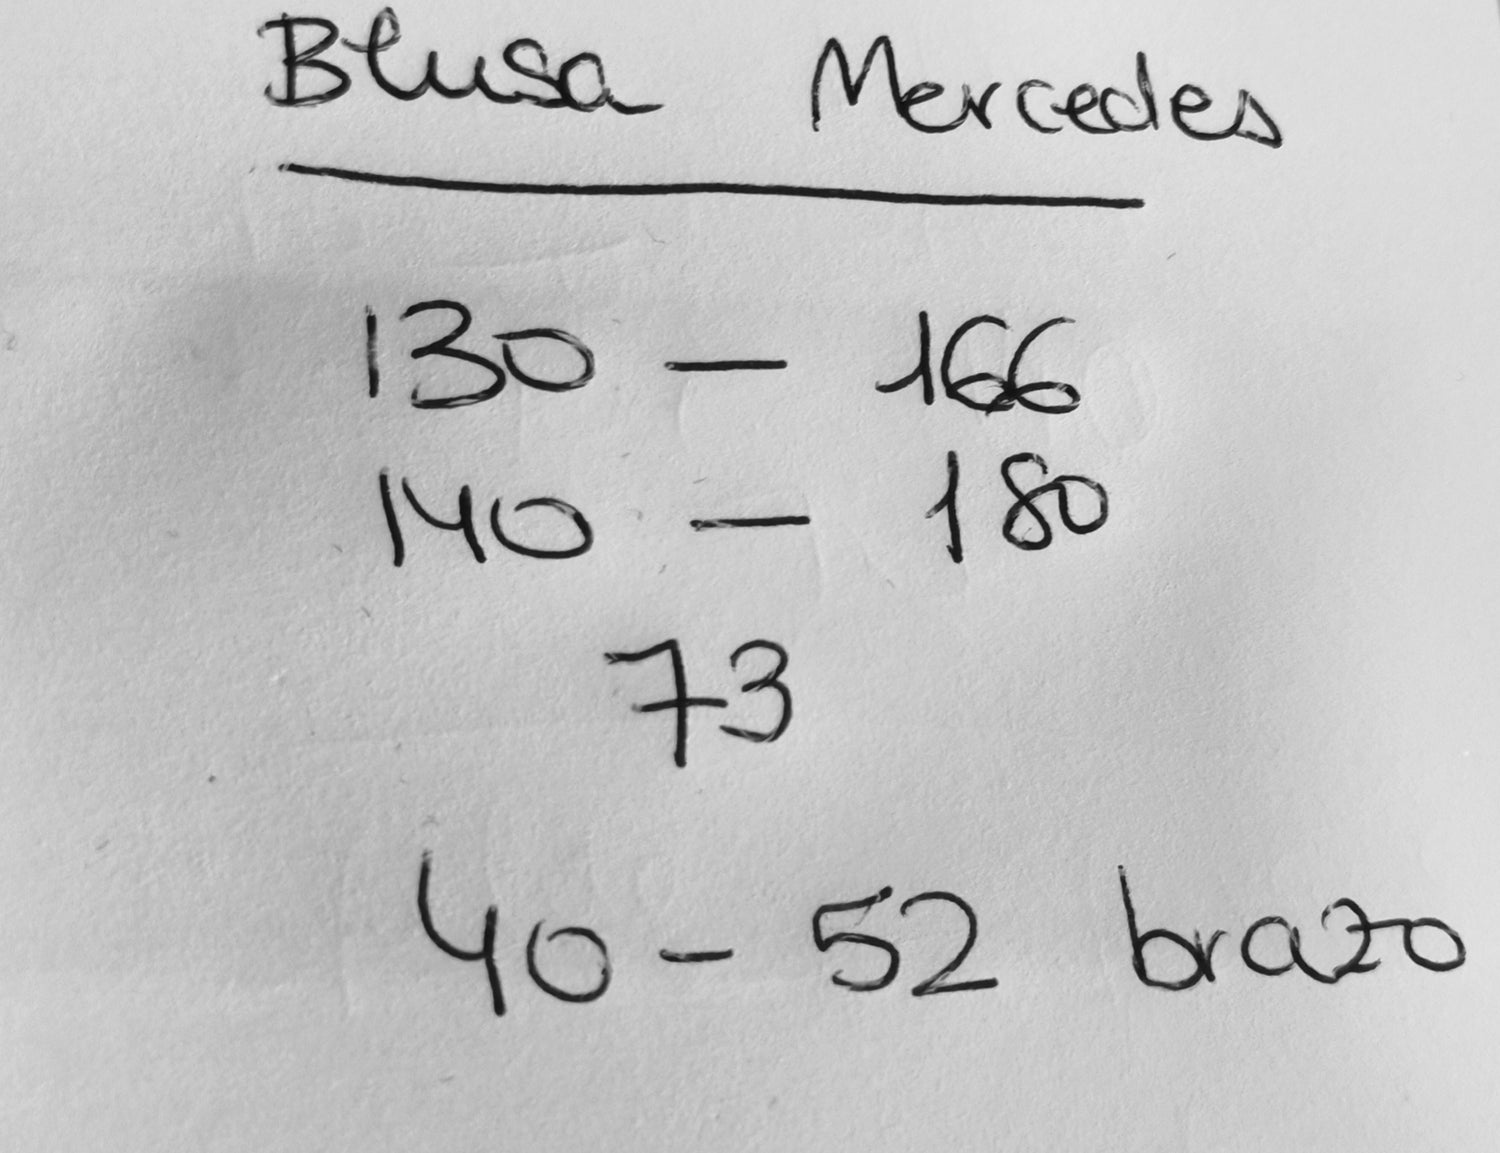 Blusa Mercedes
130 — 166
140 — 180
73
40 - 52 brazo